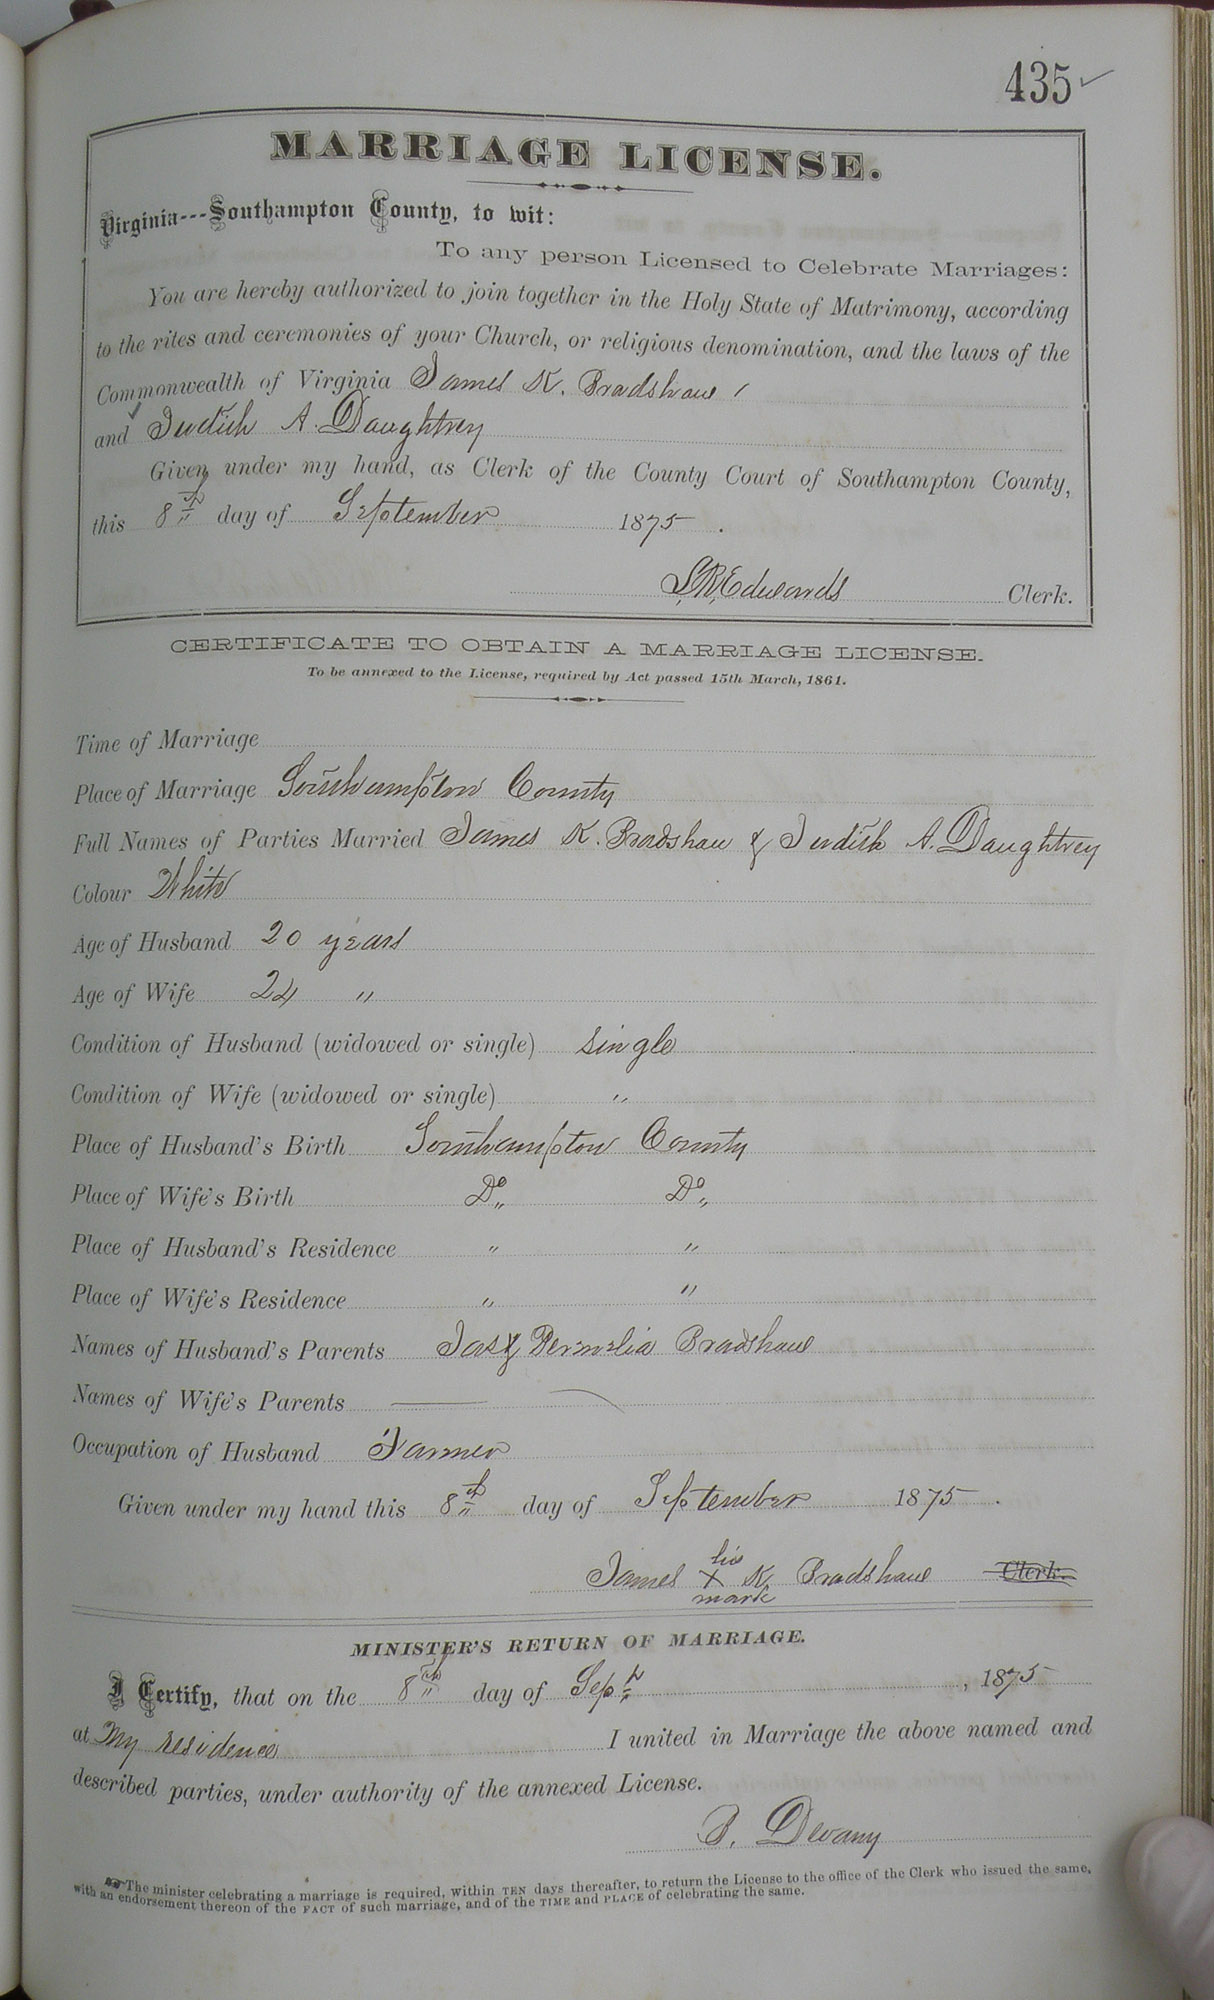 435 ✓
MARRIAGE LICENSE.
Virginia---Southampton County, to wit:
To any person Licensed to Celebrate Marriages:
You are hereby authorized to join together in the Holy State of Matrimony, according
to the rites and ceremonies of your Church, or religious denomination, and the laws of the
Commonwealth of Virginia James K. Bradshaw
and Judith A. Daughtrey
Given under my hand, as Clerk of the County Court of Southampton County,
this 8th day of September 1875.
L. R. Edwards Clerk.
CERTIFICATE TO OBTAIN A MARRIAGE LICENSE.
To be annexed to the License, required by Act passed 15th March, 1861.
Time of Marriage
Place of Marriage Southampton County
Full Names of Parties Married James K. Bradshaw & Judith A. Daughtrey
Colour White
Age of Husband 20 years
Age of Wife 24 "
Condition of Husband (widowed or single) single
Condition of Wife (widowed or single) "
Place of Husband's Birth Southampton County
Place of Wife's Birth Do Do
Place of Husband's Residence " "
Place of Wife's Residence " "
Names of Husband's Parents Jas & Permelia Bradshaw
Names of Wife's Parents ——
Occupation of Husband Farmer
Given under my hand this 8th day of September 1875.
his
James X K Bradshaw Clerk.
mark
MINISTER'S RETURN OF MARRIAGE.
I Certify, that on the 8th day of Sept, 1875
at My residence I united in Marriage the above named and
described parties, under authority of the annexed License.
Devany
The minister celebrating a marriage is required, within TEN days thereafter, to return the License to the office of the Clerk who issued the same,
with an endorsement thereon of the FACT of such marriage, and of the TIME and PLACE of celebrating the same.